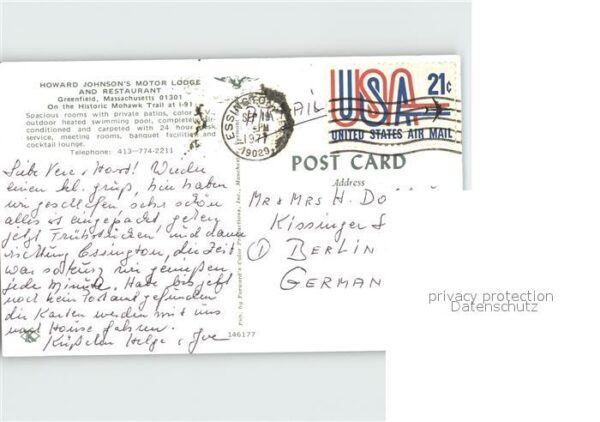 HOWARD JOHNSON'S MOTOR LODGE
AND RESTAURANT
Greenfield, Massachusetts 01301
On the Historic Mohawk Trail at I-91
Spacious rooms with private patios, color
outdoor heated swimming pool, completely
conditioned and carpeted with 24 hour desk
service, meeting rooms, banquet facilities and
cocktail lounge.
Telephone: 413-774-2211
ESSINGTON
19029
1977
AIL
USA 21c
UNITED STATES AIR MAIL
POST CARD
Address
Mr & Mrs H. Do
Kissinger
① BERLIN
GERMAN
Wieder
einen kl. Gruß, hier haben
wir geschlafen sehr schön
alles ist eingepackt gehen
jetzt Frühstücken und dann
richtung Essington, die Zeit
war so kurz wir genießen
jede Minute. Habe bis jetzt
noch kein Postamt gefunden
die Karten werden mit uns
nach Hause fahren.
Küßchen Helga +
Pub. by Forward's Color Productions, Inc., Manchester
146177
privacy protection
Datenschutz